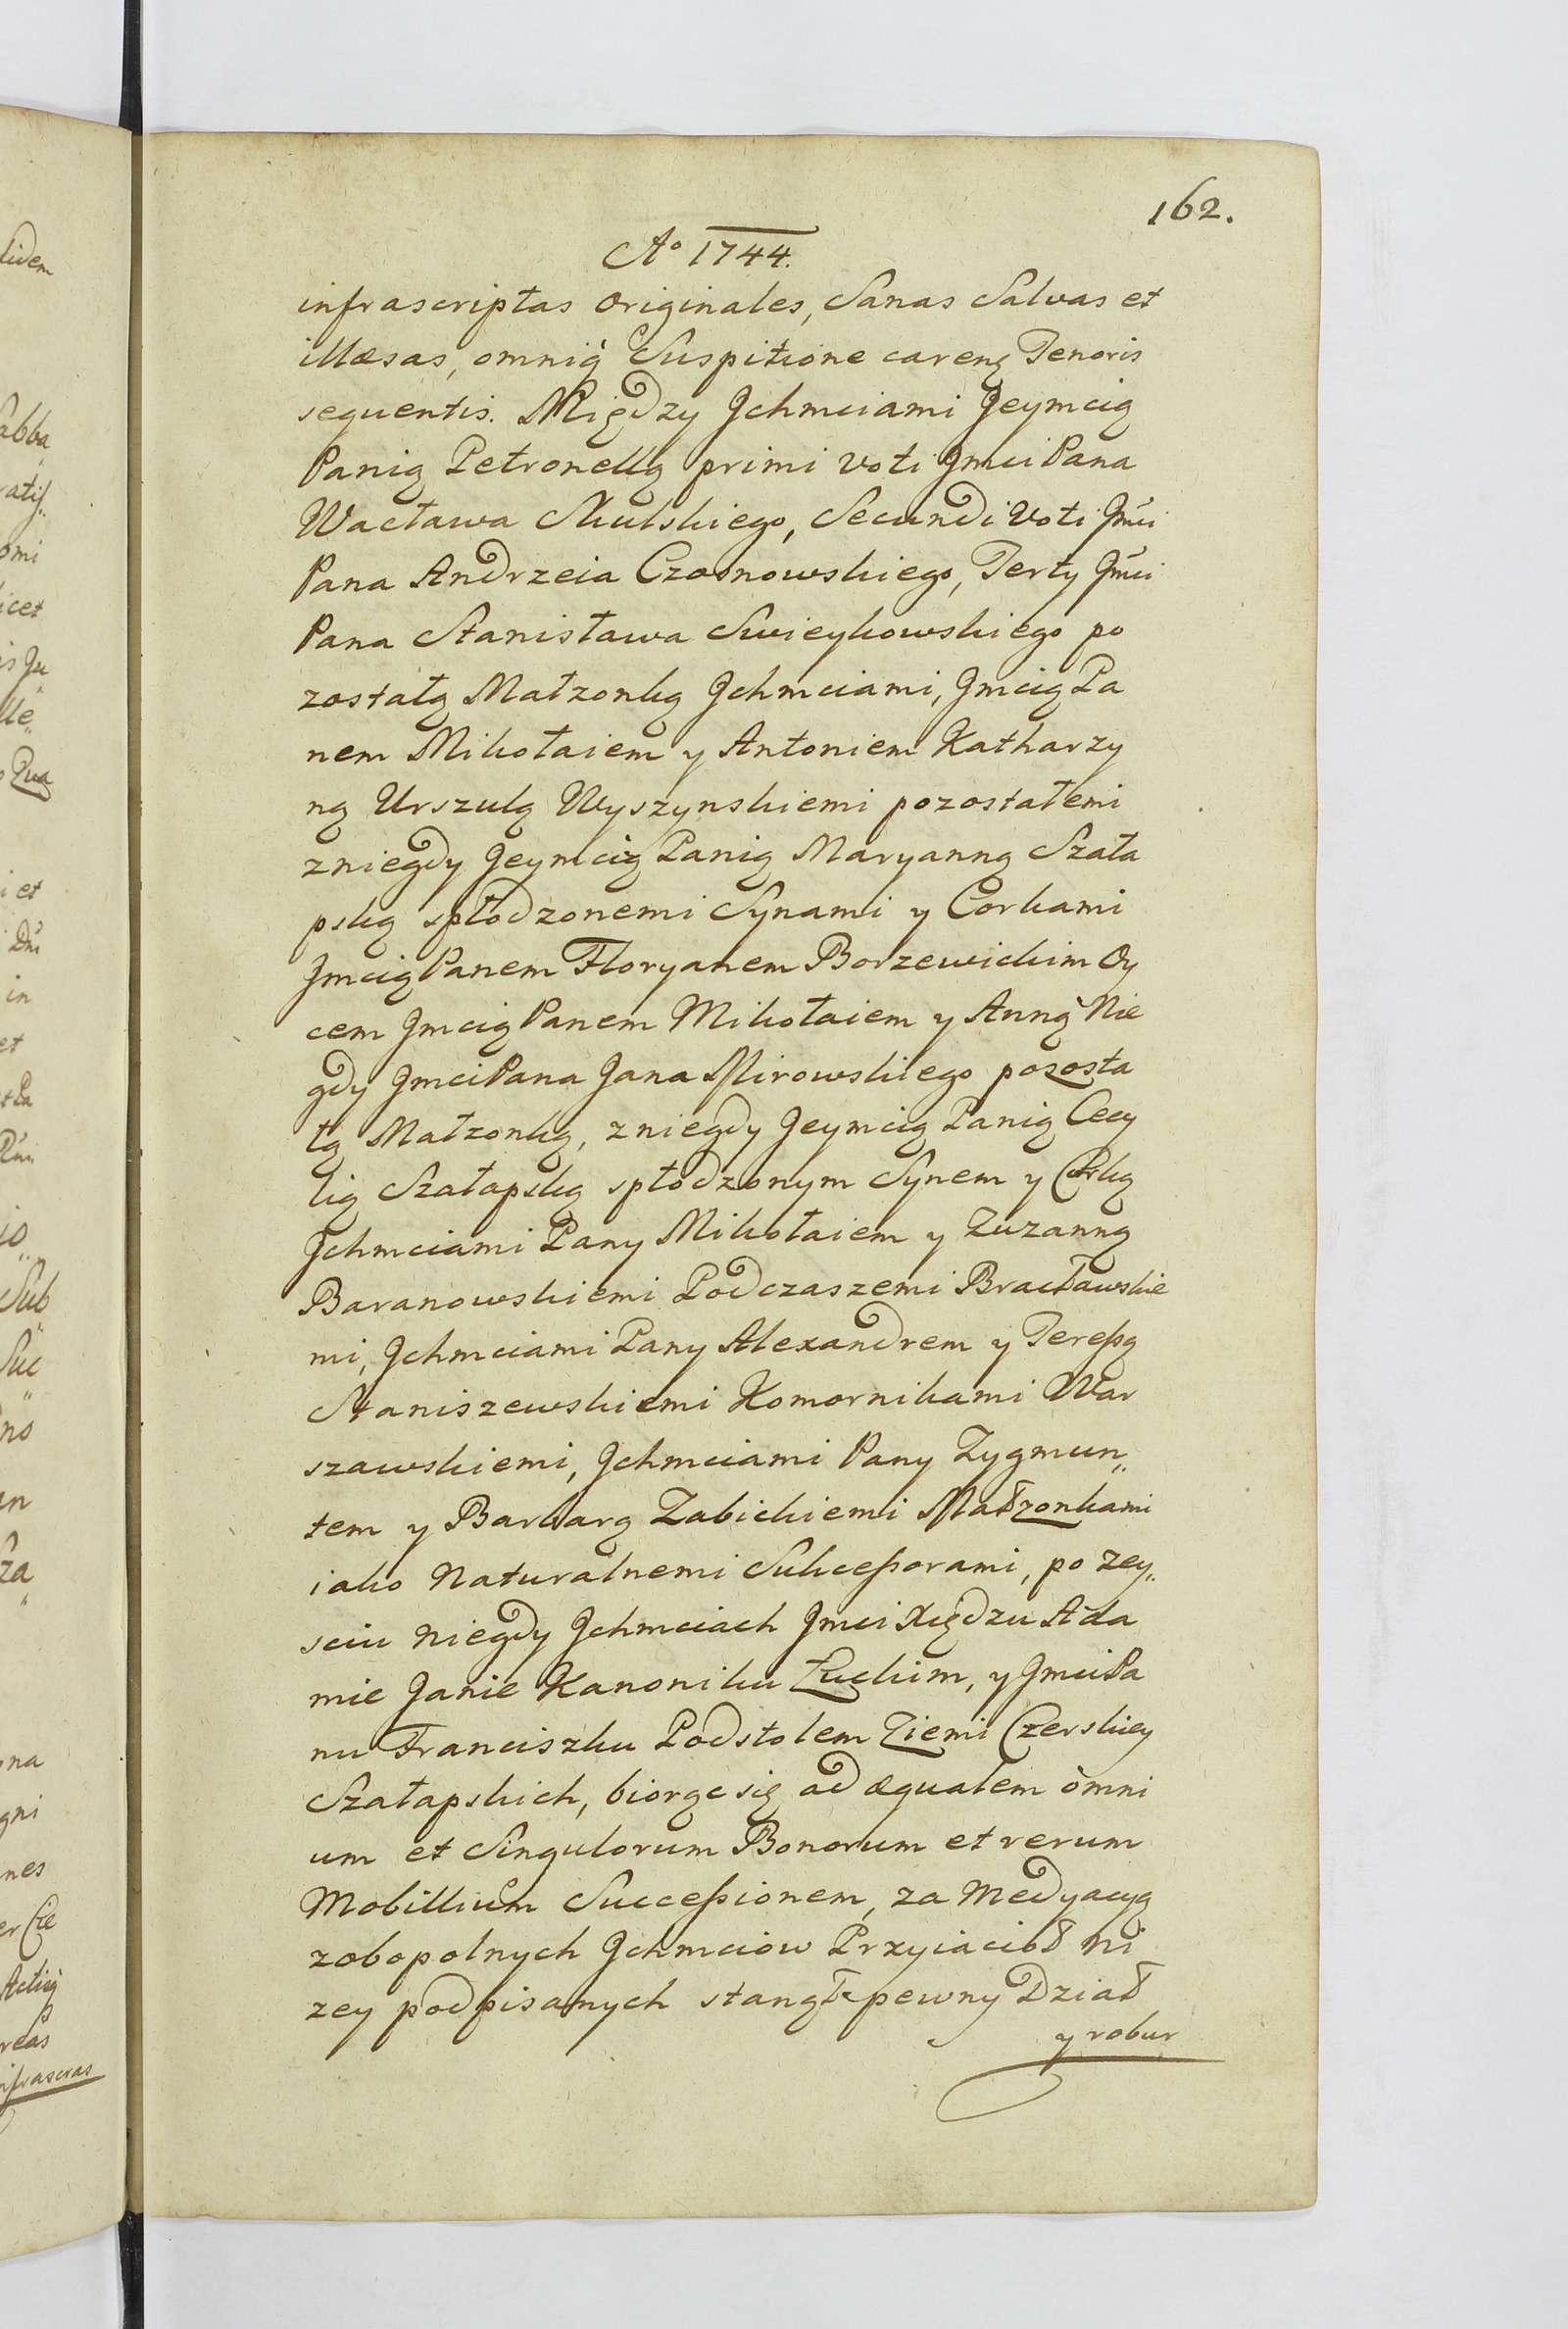 162.
Aº 1744.
infrascriptas originales, Sanas Salvas et
illæsas, omniq́ Suspitione careng Tenoris
sequentis. Między Jchmciami Jeymcią
Panią Petronellą primi voti Jmci Pana
Wacława Skulskiego, Secundi Voti Jmci
Pana Andrzeia Czosnowskiego, Terty Jmci
Pana Stanisława Swieykowskiego po
zostałą Małzonką Jchmciami, Jmcią Pa
nem Mikołaiem y Antoniem Katharzy
ną Urszulą Wyszynskiemi pozostałemi
zniegdy Jeymcią Panią Maryanną Szała
pską spłodzonemi Synami y Corkami
Jmcią Panem Floryanem Borzewickim Oy
cem Jmcią Panem Mikołaiem y Anną Nie
gdy Jmci Pana Jana Mirowskiego pozosta
łą Małzonką, zniegdy Jeymcią Panią Cecy
lią Szałapską spłodzonym Synem y Corką
Jchmciami Pany Mikołaiem y Zuzanną
Baranowskiemi Podczaszemi Bracławskie
mi, Jchmciami Pany Alexandrem y Tereßą
Staniszewskiemi Komornikami War
szawskiemi, Jchmciami Pany Zygmun„
tem y Barbarą Zabickiemi Małzonkami
iako Naturalnemi Sukceßorami, po zey„
sciu niegdy Jchmciach Jmci Xiędzu Ada
mie Janie Kanoniku Łuckim, y Jmci Pa
nu Franciszku Podstolem Ziemi Czerskiey
Szałapskich, biorąc się ad æqualem omni
um et Singulorum Bonorum et rerum
Mobillium Succeßionem, za Medyacyą
zobopolnych Jchmciow Przyiacioł ni
zey podpisanych stanął pewny Dział
y robur